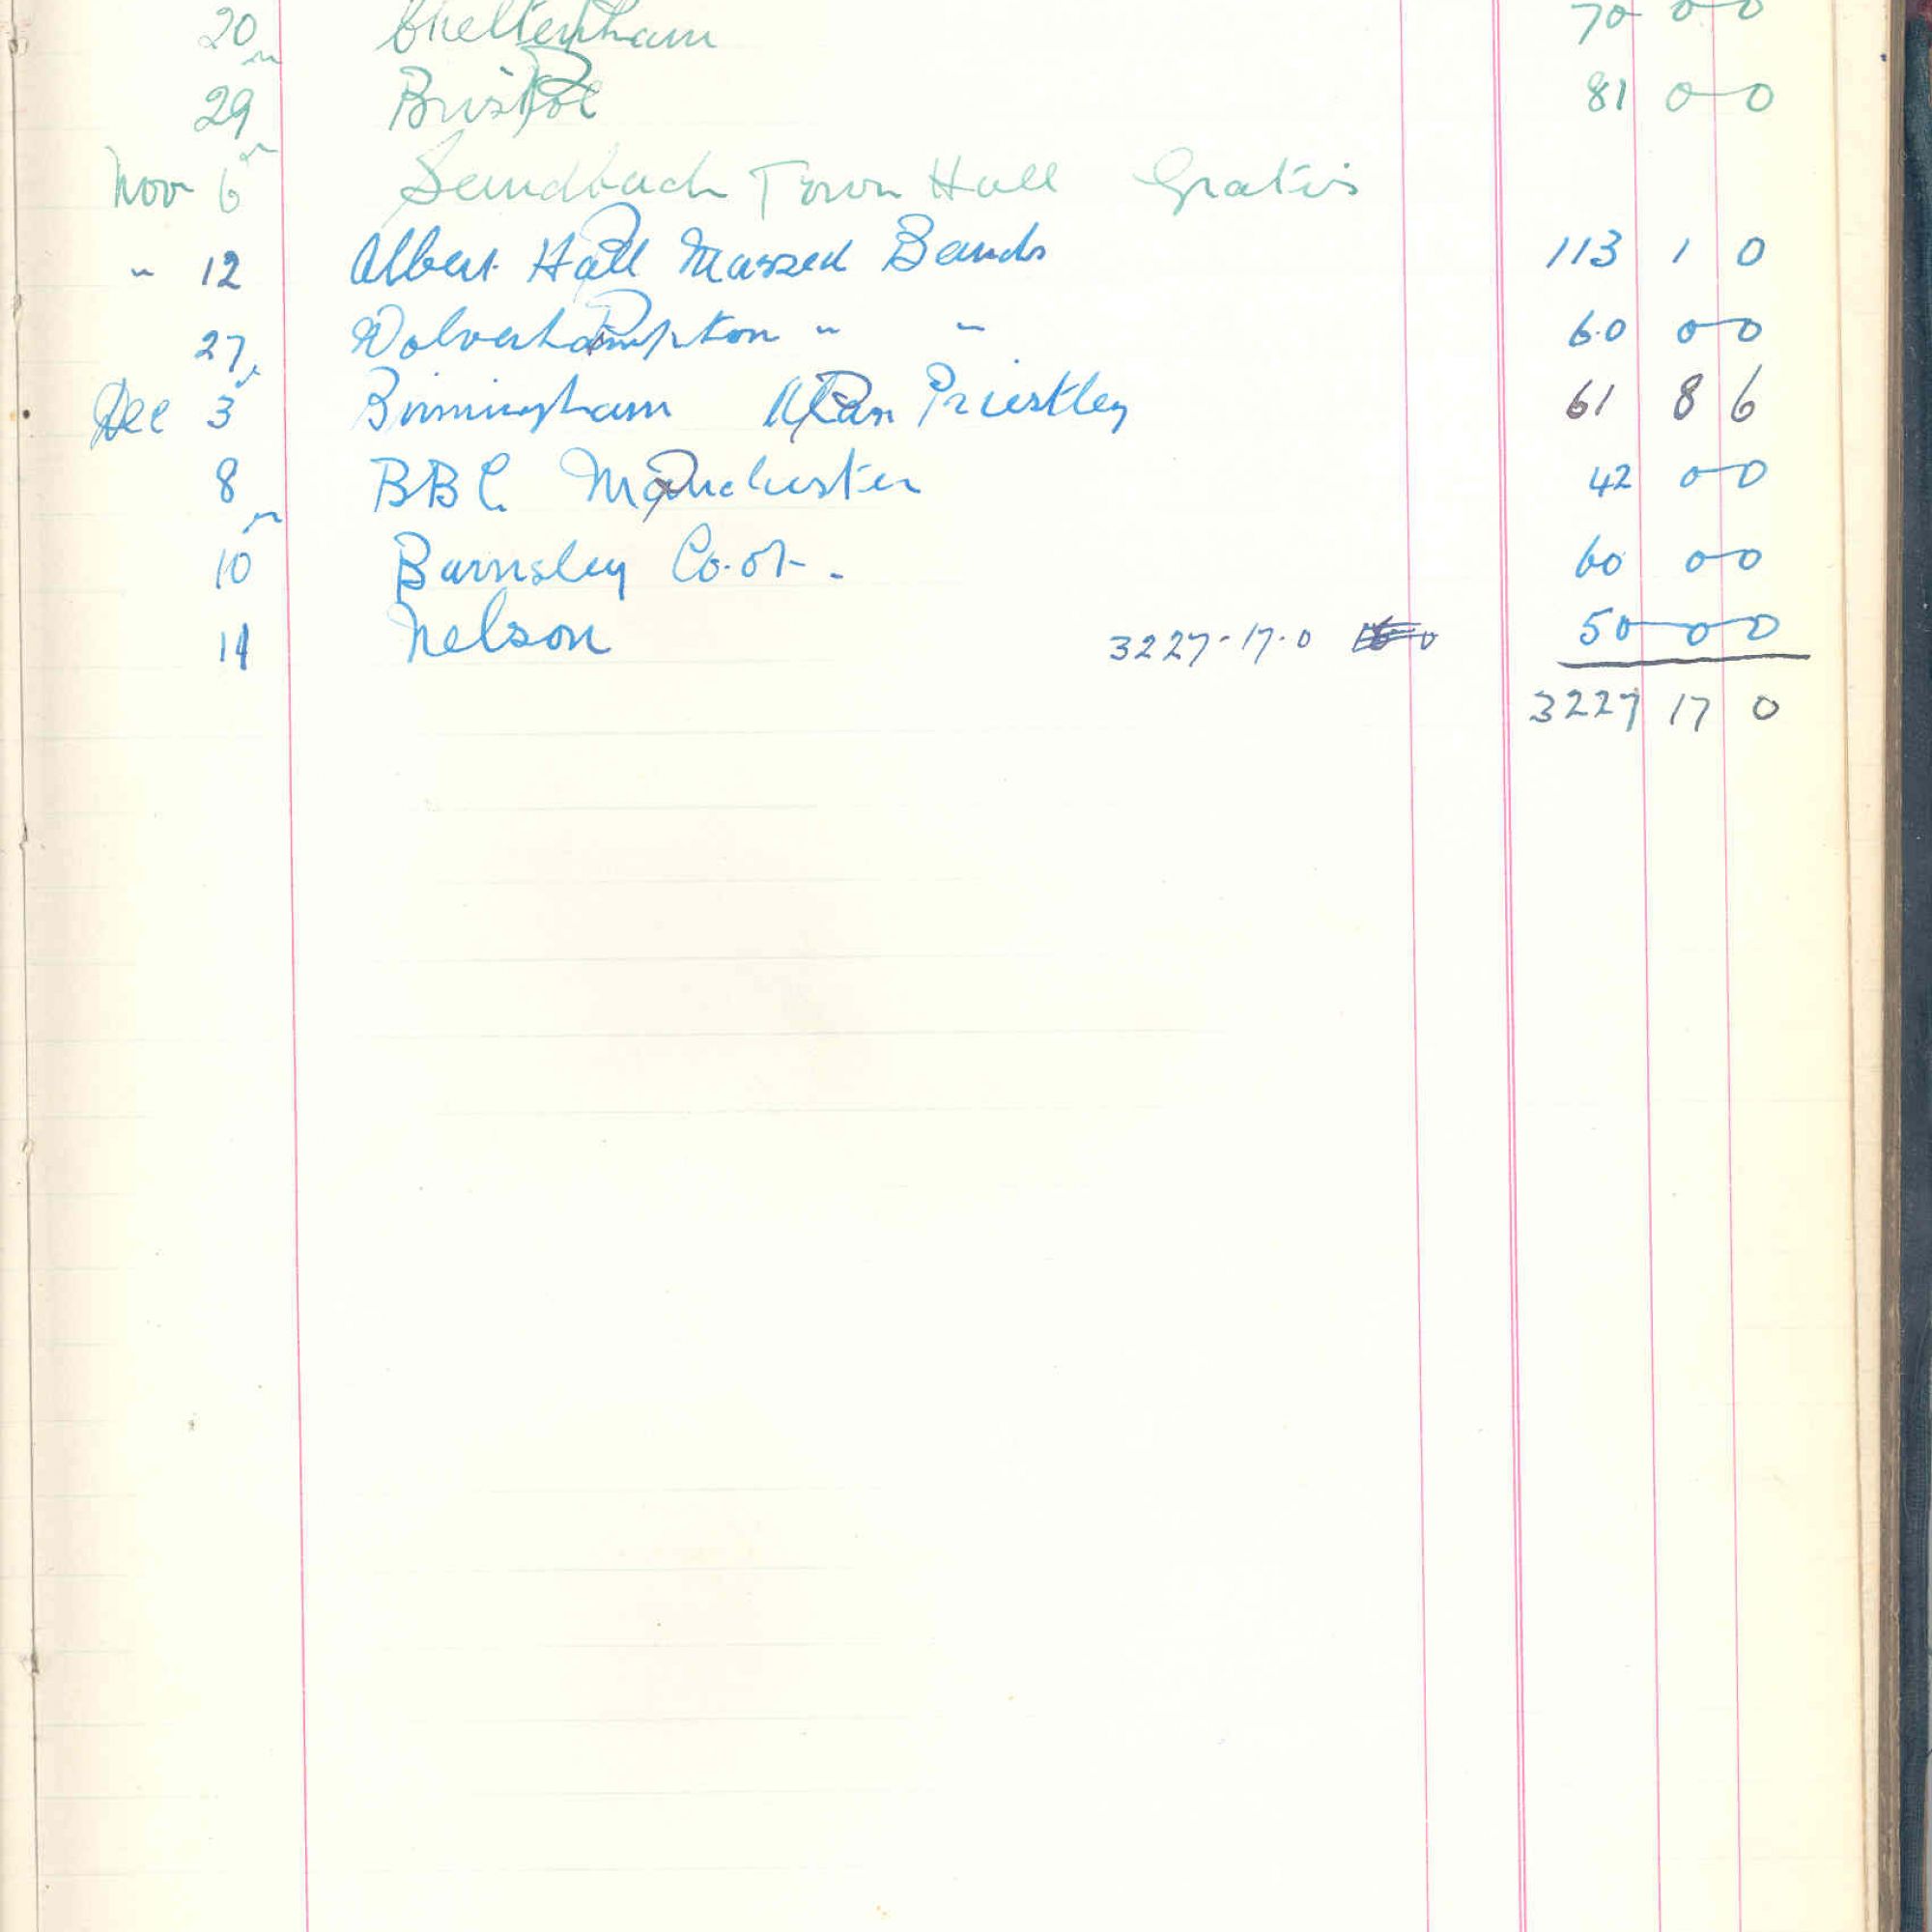 20 Cheltenham 70 0 0
29 Bristol 81 0 0
Nov 6 Sandbach Town Hall Gratis
" 12 Albert Hall Massed Bands 113 1 0
27 Wolverhampton " " 60 0 0
Dec 3 Birmingham Alan Priestley 61 8 6
8 BBC Manchester 42 0 0
10 Barnsley Co.op. 60 0 0
11 Nelson 3227-17-0 50 0 0
3227 17 0